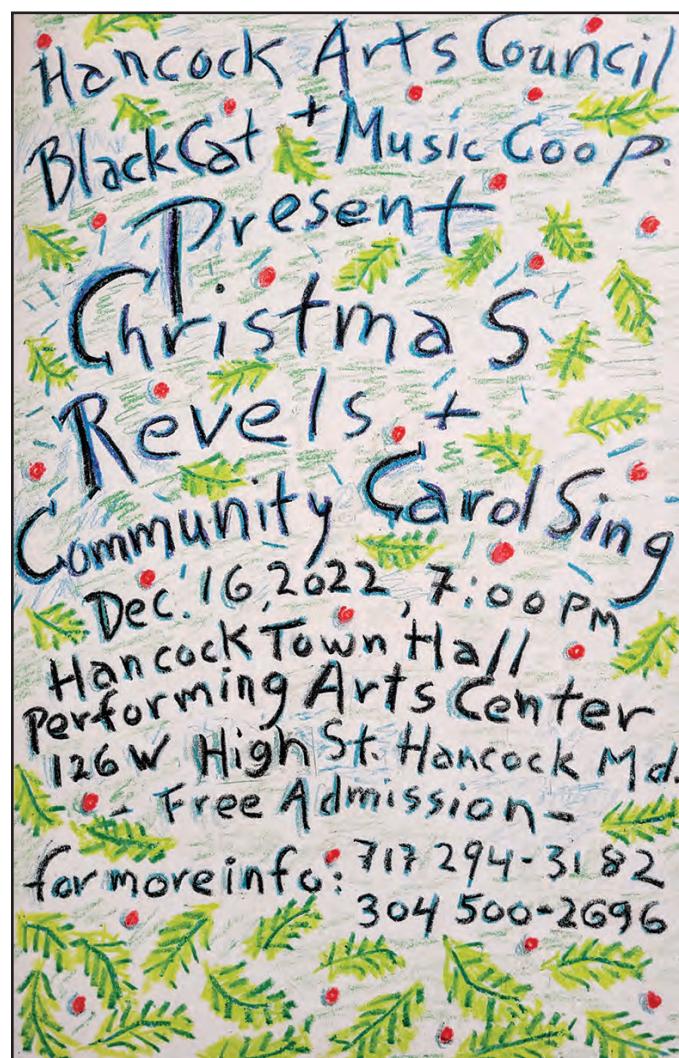 Hancock Arts Council
+
BlackCat Music Coop.
Present
Christmas
Revels +
Community Carol Sing
Dec. 16, 2022, 7:00 PM
Hancock Town Hall
Performing Arts Center
126 W High St. Hancock Md.
- Free Admission -
for more info: 717 294-3182
304 500-2696